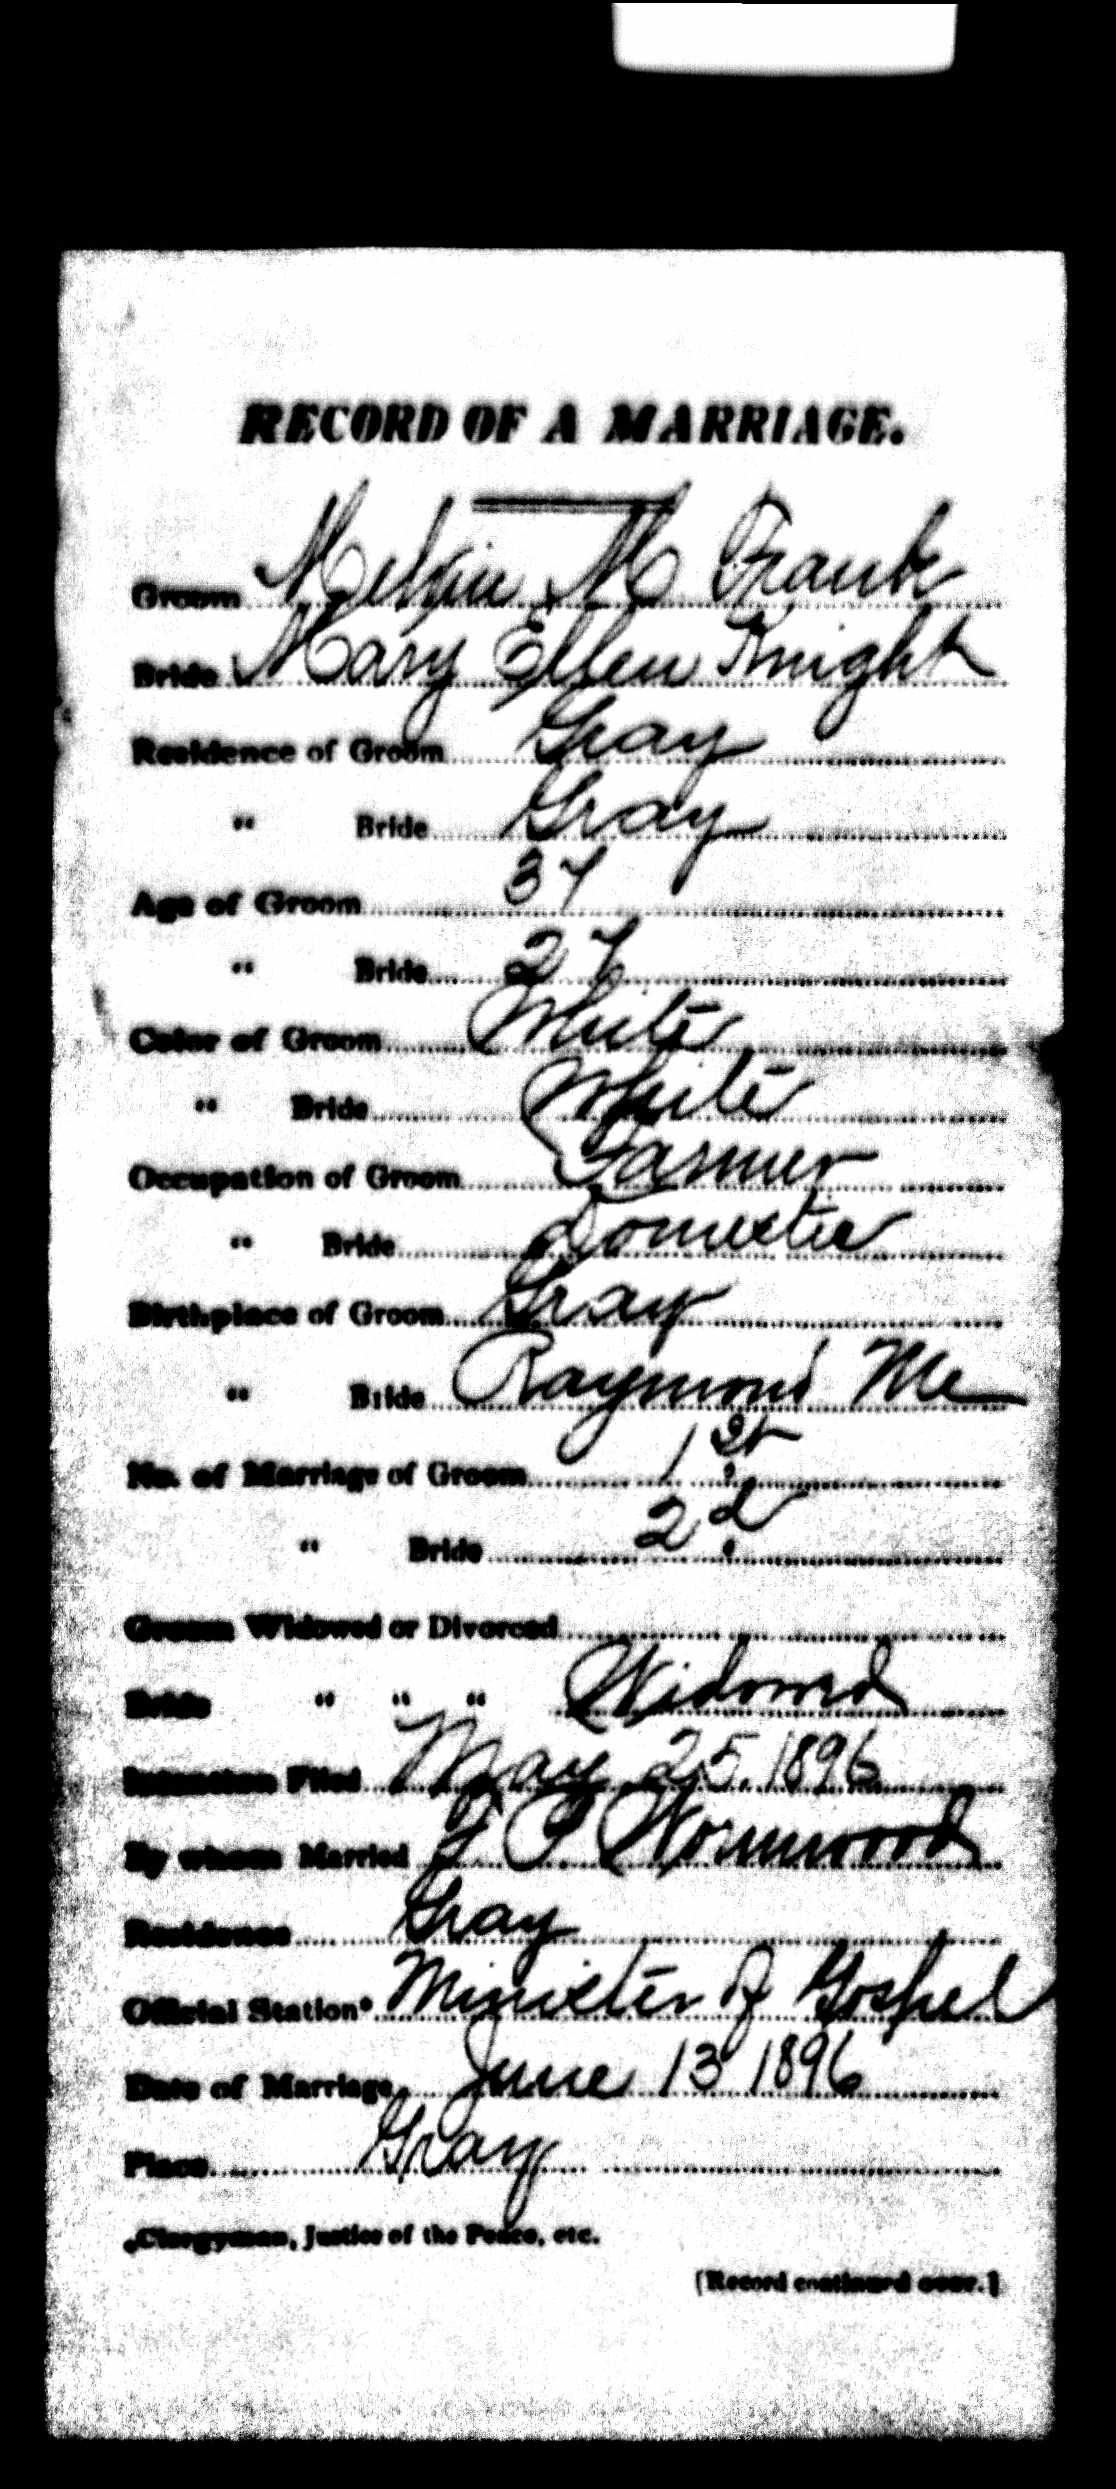 RECORD OF A MARRIAGE.
Groom Melvin M Frank
Bride Mary Ellen Knight
Residence of Groom Gray
" Bride Gray
Age of Groom 37
" Bride 27
Color of Groom White
" Bride White
Occupation of Groom Farmer
" Bride Domestic
Birthplace of Groom Gray
" Bride Raymond Me
No. of Marriage of Groom 1st
" Bride 2d
Groom Widowed or Divorced
Bride " " " Widowed
Intention Filed May 25, 1896
By whom Married P Wormwood
Residence Gray
Official Station* Minister of Gospel
Date of Marriage, June 13 1896
Place Gray
*Clergyman, Justice of the Peace, etc.
[Record continued over.]